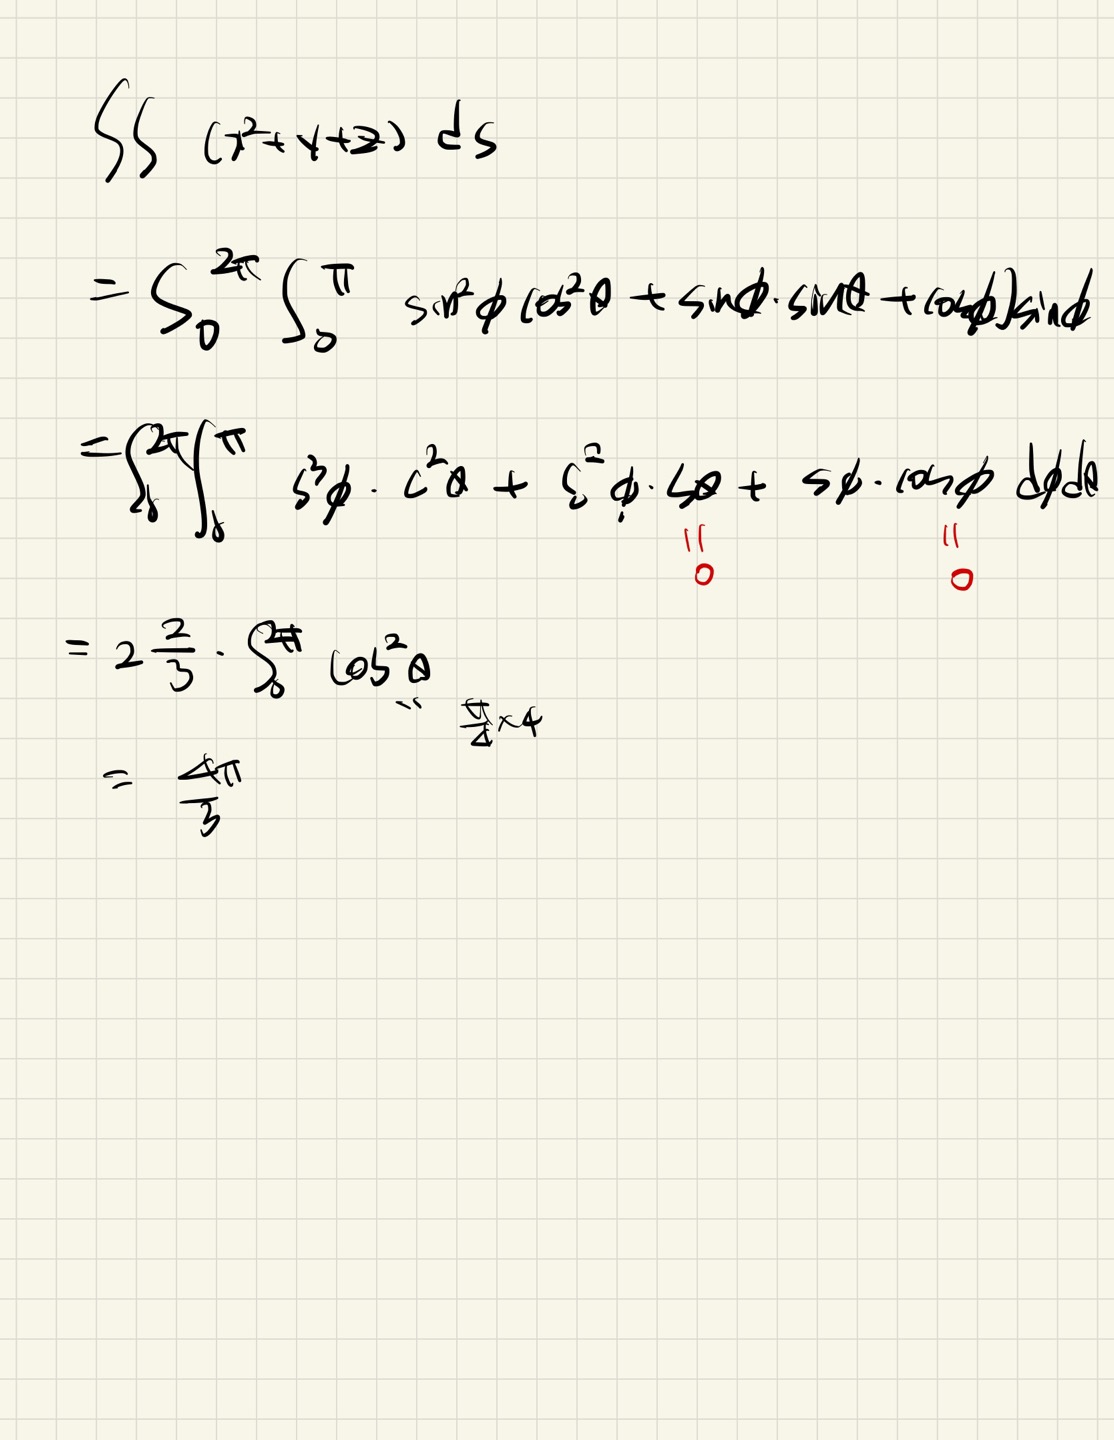 ∫∫ (x²+y+z) ds
= ∫₀^2π ∫₀^π sin²φ cos²θ + sinφ·sinθ + cosφ]sinφ
= ∫₀^2π ∫₀^π s³φ · c²θ + s²φ · sθ + sφ · cosφ dφdθ
" 0 " 0
= 2 2/3 · ∫₀^2π cos²θ
" π/4 ×4
= 4π/3